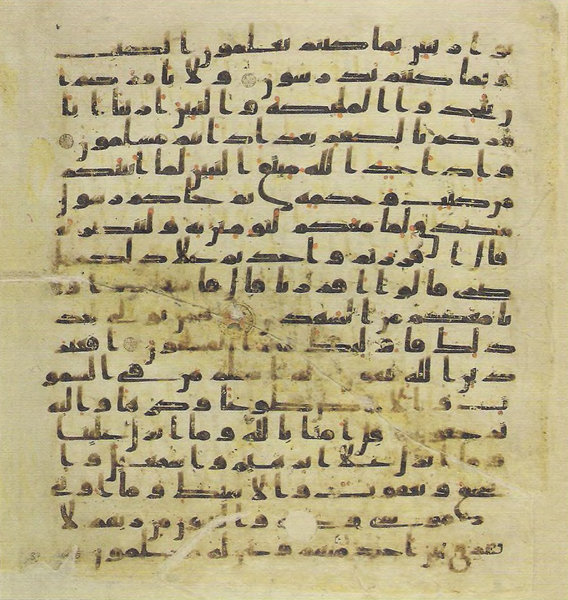 نوا ربنين بما كنتم تعلمون الكتب
وبما كنتم تدرسون ولا يامركم ا
ن تتخذوا الملئكة والنبين اربابا ايا
مركم بالكفر بعد اذ انتم مسلمون
واذ اخذ الله ميثق النبين لما اتيتكم
من كتب وحكمة ثم جاكم رسول
مصدق لما معكم لتومنن به ولتنصرنه
قال اقررتم واخذتم على ذلكم ا
صرى قالوا اقررنا قال فاشهدوا وا
نا معكم من الشهدين فمن تولى بعد
ذلك فاولئك هم الفسقون افغير
دين الله يبغون وله اسلم من فى السمو
ت والارض طوعا وكرها واليه
ترجعون قل امنا بالله وما انزل علينا
وما انزل على ابرهيم واسمعيل وا
سحق ويعقوب والاسبط وما اوتى
موسى وعيسى والنبيون من ربهم لا
نفرق بين احد منهم ونحن له مسلمون